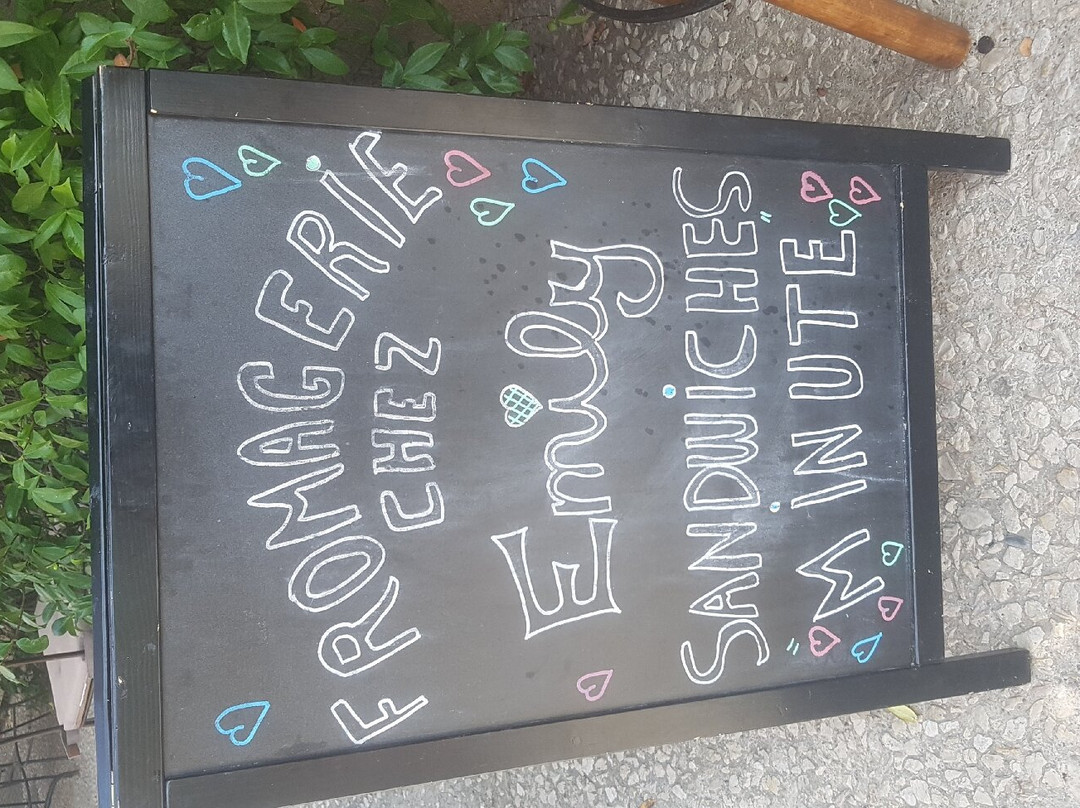 FROMAGERIE
CHEZ
Emily
SANDWICHES
"MINUTE"